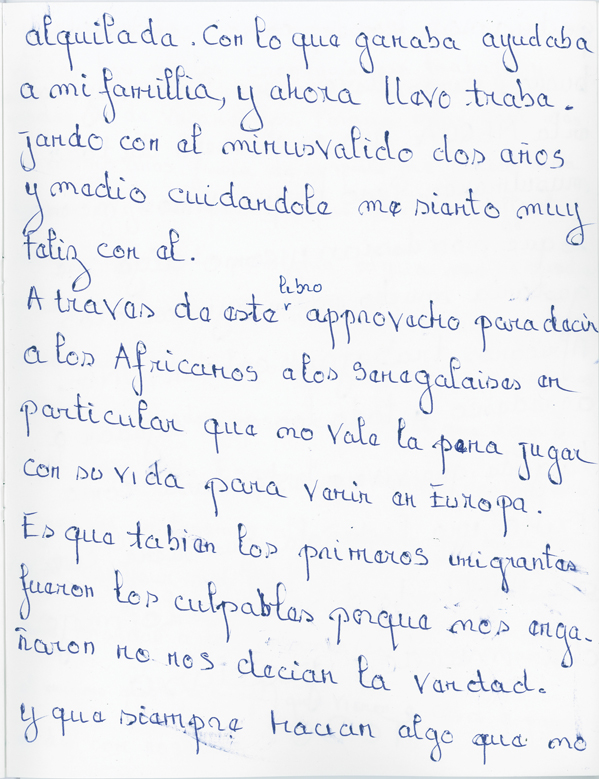 alquilada. Con lo que ganaba ayudaba
a mi famillia, y ahora llevo traba-
jando con el minusvalido dos años
y medio cuidandole me siento muy
feliz con el.
libro
A traves de este approvecho para decir
a los Africanos a los Senegalaises en
particular que no vale la pena jugar
con su vida para venir en Europa.
Es que tabien los primeros imigrantes
fueron los culpables porque nos enga-
ñaron no nos decian la verdad.
y que siempre hacian algo que no